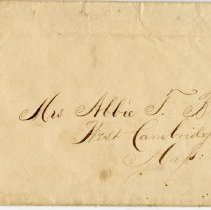 Mrs Abbie T. B
West Cambridg
Mass: